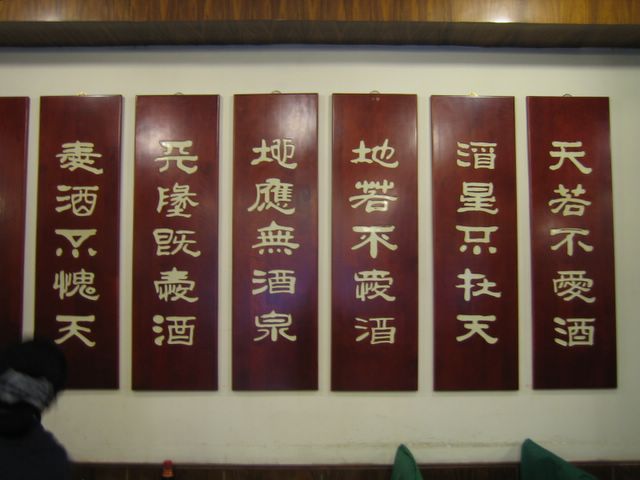 天若不愛酒
酒星不在天
地若不愛酒
地應無酒泉
天地既愛酒
愛酒不愧天